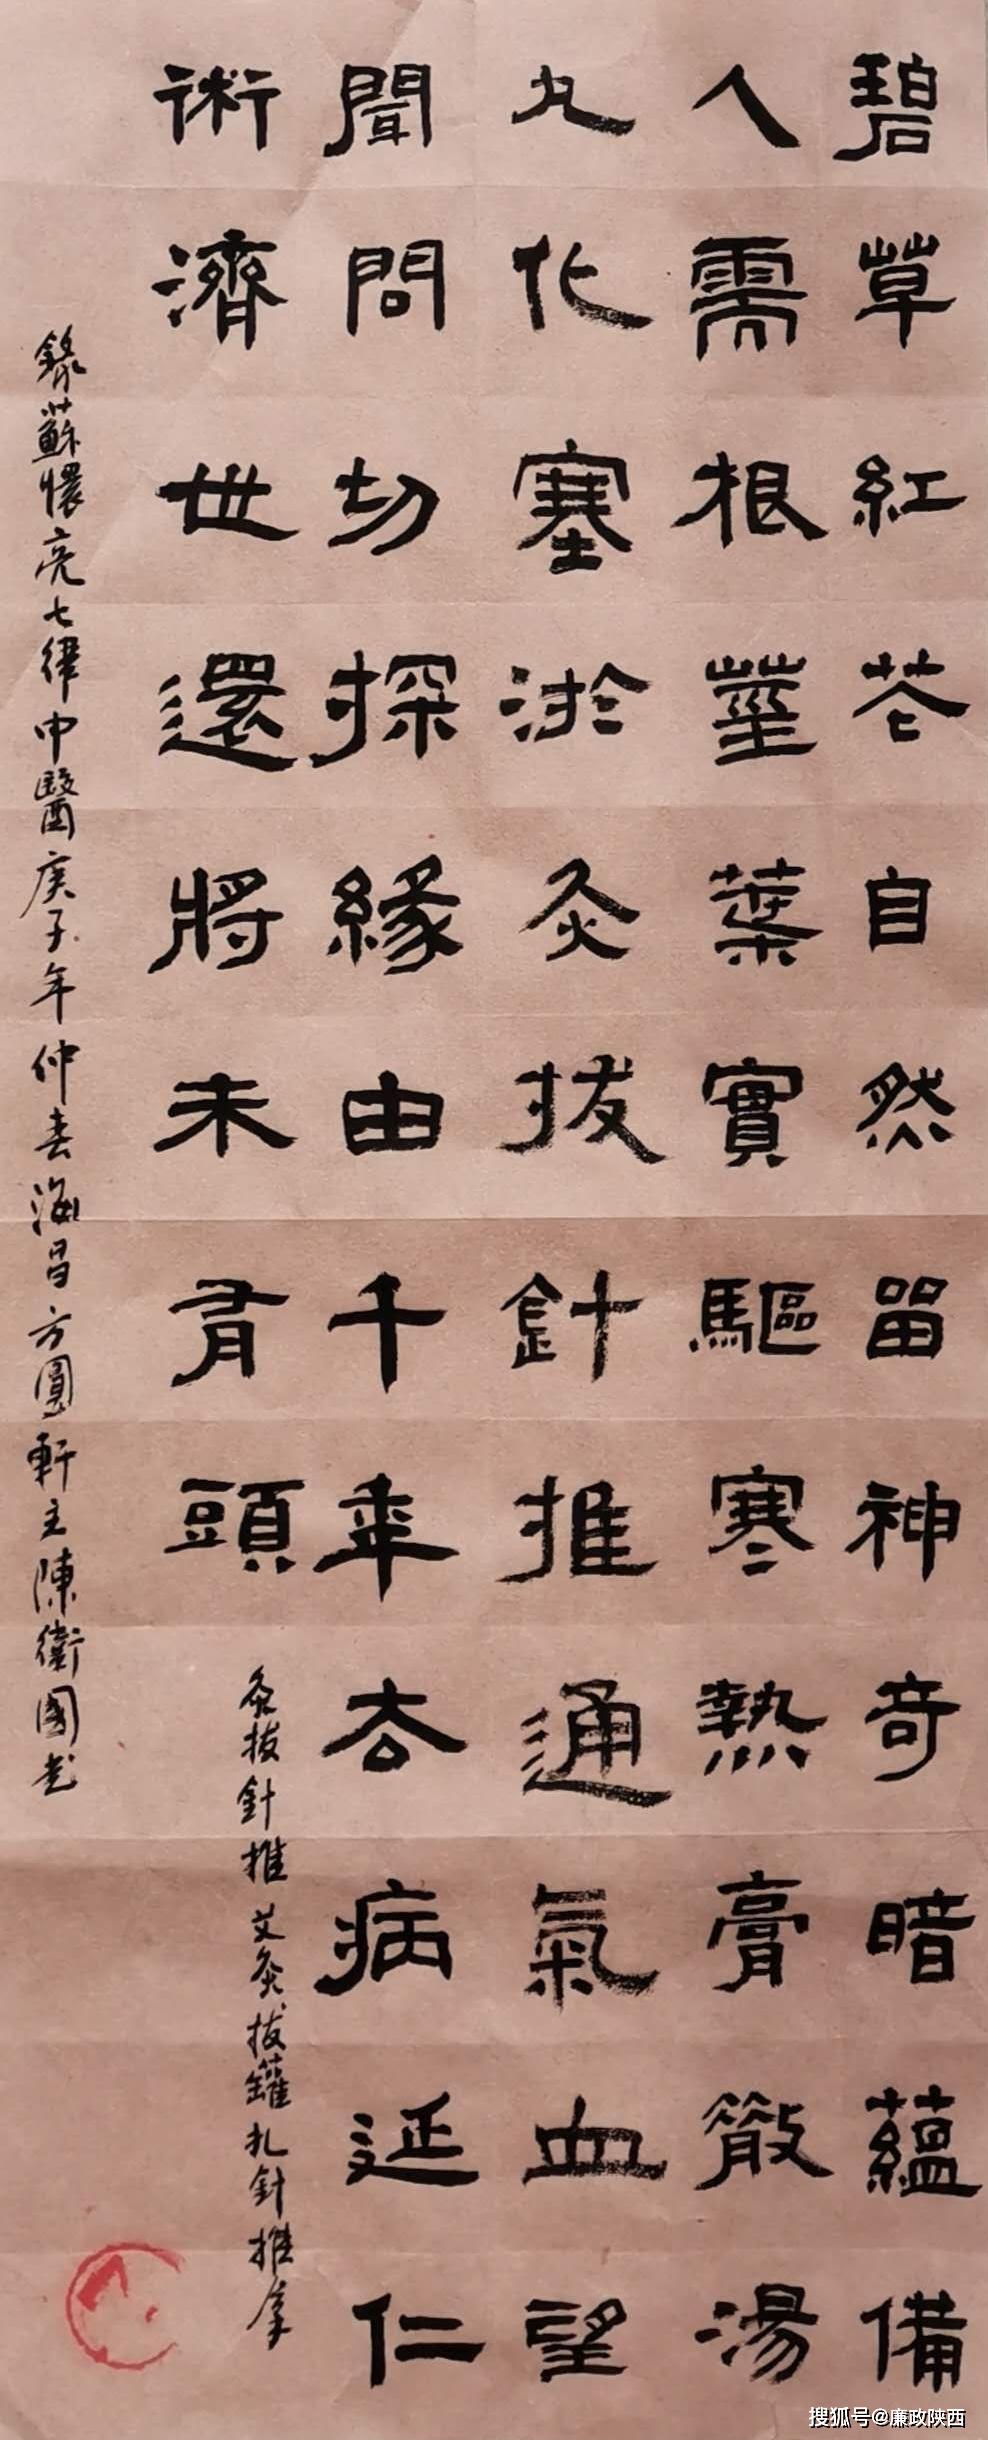 碧草紅花自然留神奇暗蘊備
人需根莖葉實驅寒熱膏散湯
丸化塞淤灸拔針推通氣血望
聞問切探緣由千年去病延仁
術濟世還將未肯頭
灸拔針推 艾灸拔罐扎針推拿
錄蘇懷亮七律中醫庚子年仲春海昌方圓軒主陳衛國書
搜狐号@廉政陕西